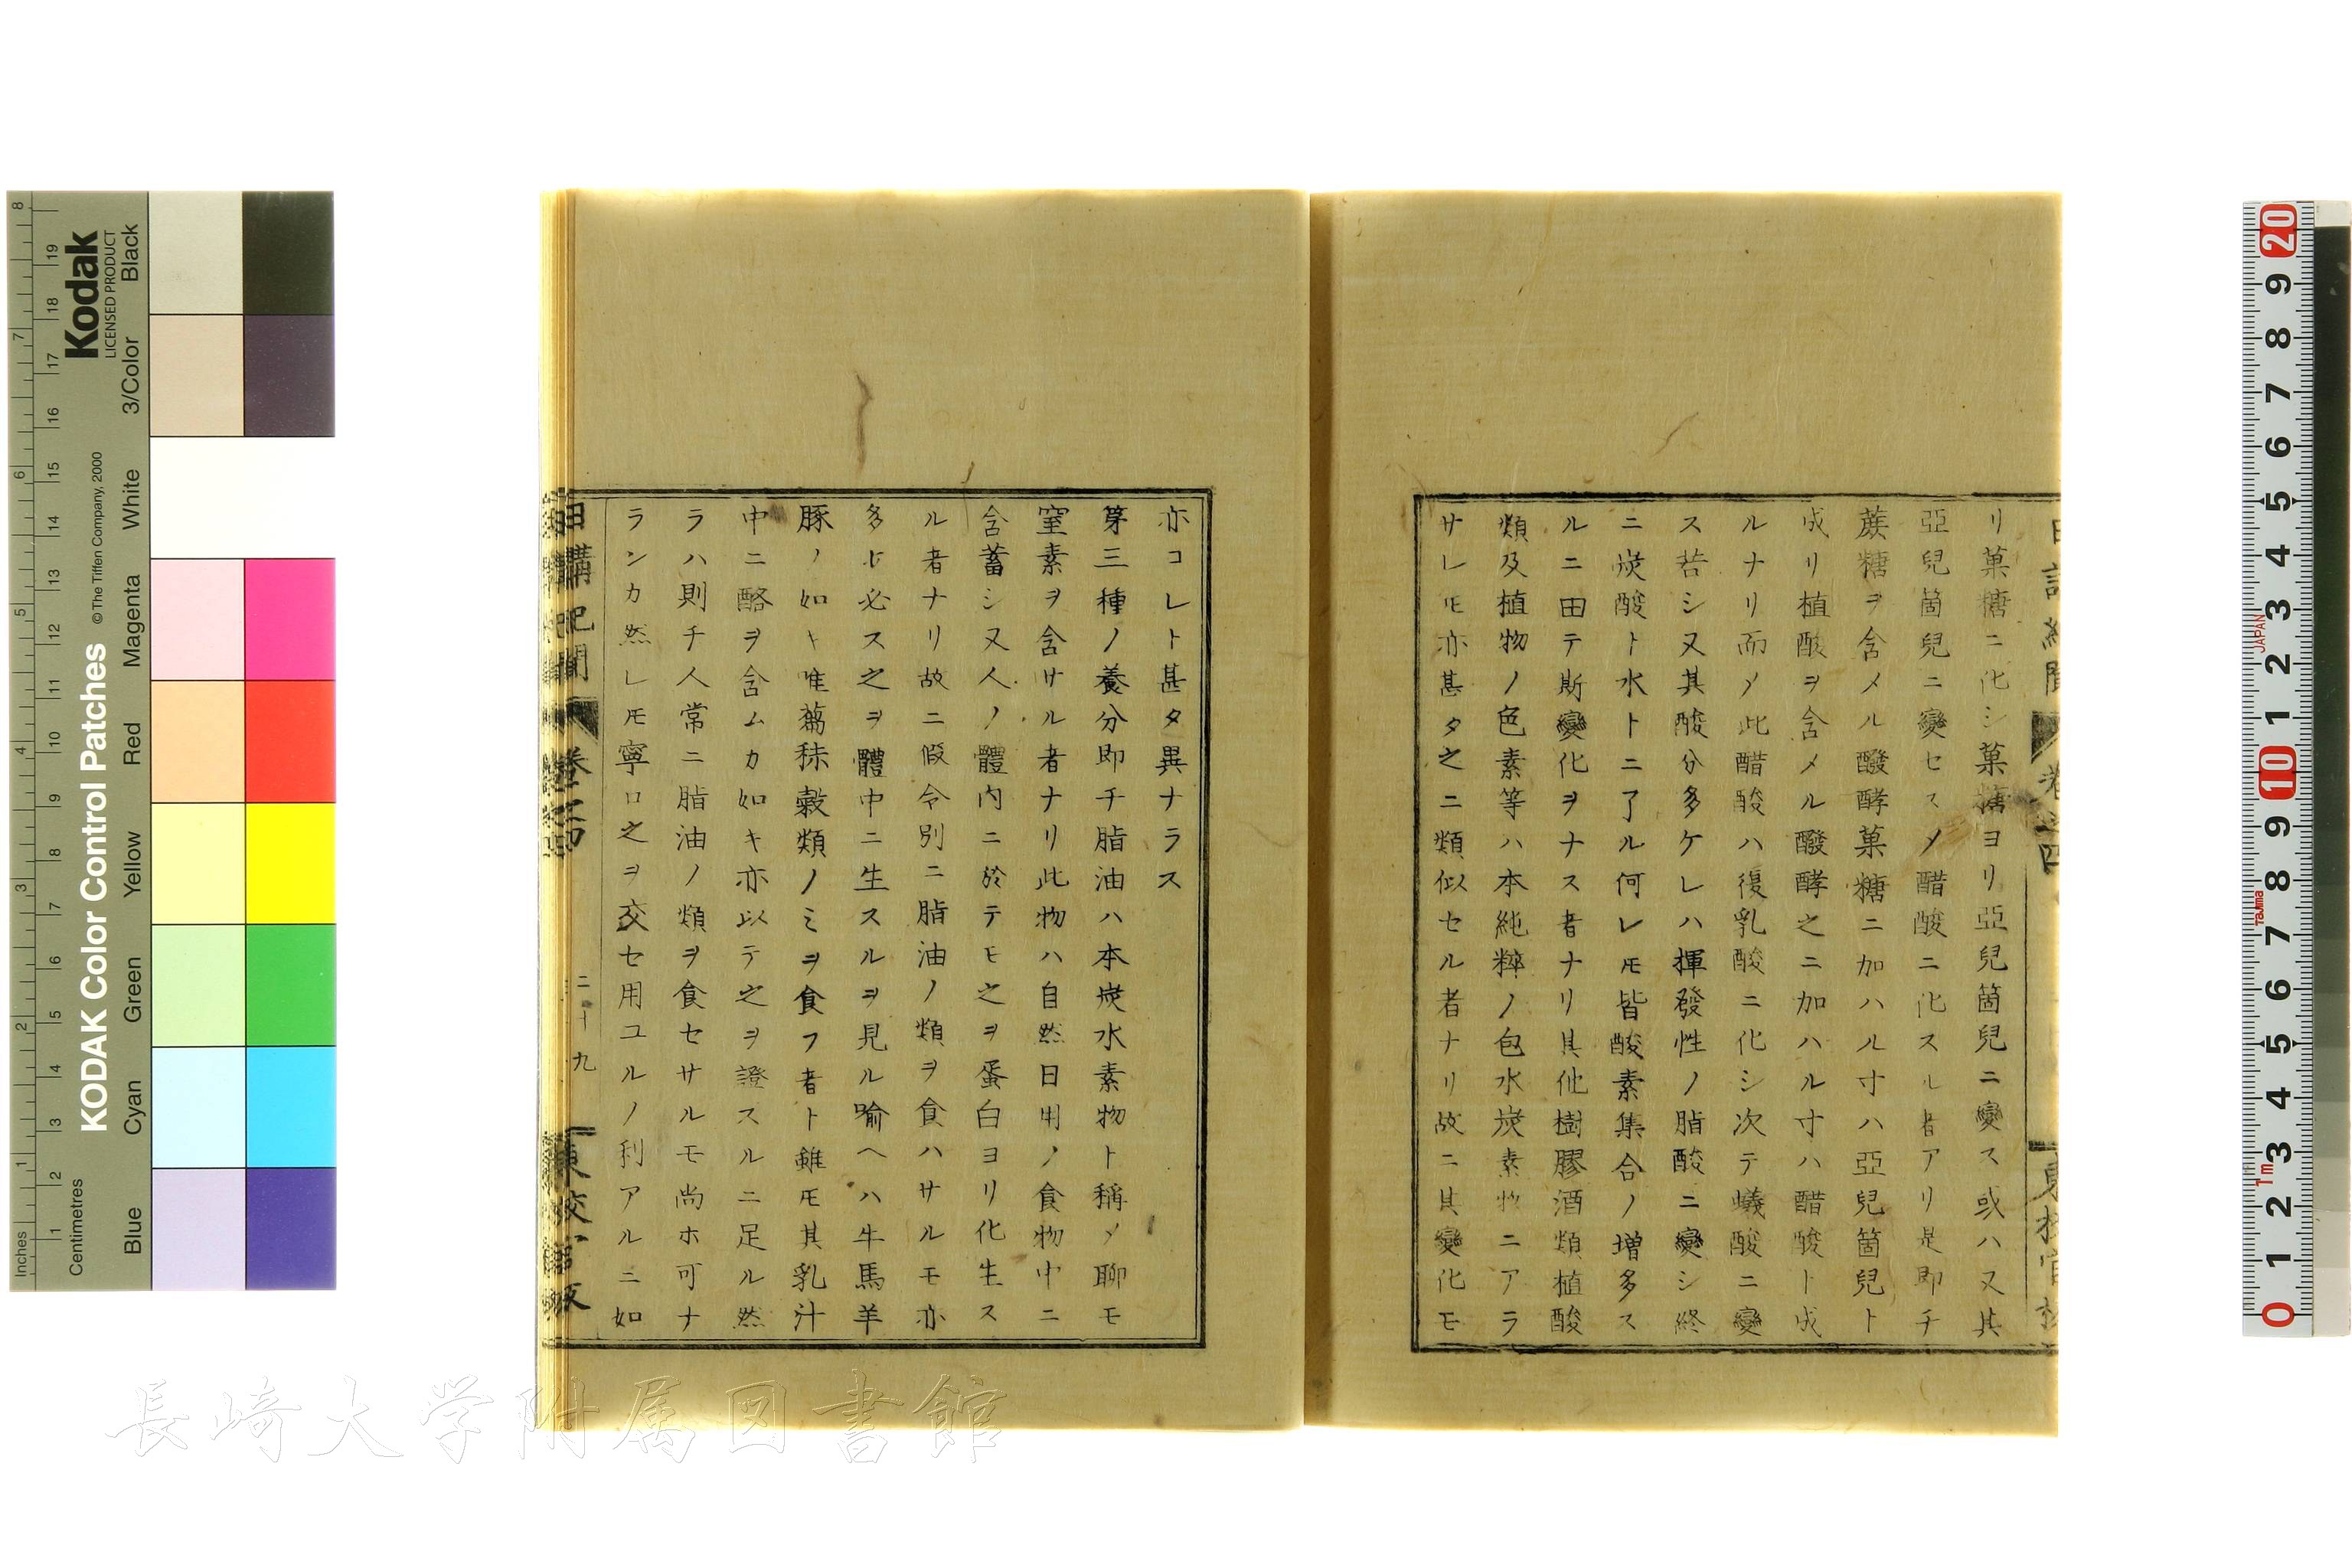 リ菓糖ニ化シ菓糖ヨリ亞兒箇兒ニ變ス或ハ又其
亞兒箇兒ニ變セスメ醋酸ニ化スル者アリ是即チ
蔗糖ヲ含メル醱酵菓糖ニ加ハル寸ハ亞兒箇兒ト
成リ植酸ヲ含メル醱酵之ニ加ハル寸ハ醋酸ト成
ルナリ而メ此醋酸ハ復乳酸ニ化シ次テ蟻酸ニ變
ス若シ又其酸分多ケレハ揮發性ノ脂酸ニ變シ終
ニ炭酸ト水トニ了ル何レモ皆酸素集合ノ増多ス
ルニ由テ斯變化ヲナス者ナリ其他樹膠酒類植酸
類及植物ノ色素等ハ本純粹ノ含水炭素物ニアラ
サレモ亦甚タ之ニ類似セル者ナリ故ニ其變化モ
亦コレト甚タ異ナラス
第三種ノ養分即チ脂油ハ本炭水素物ト稱メ聊モ
窒素ヲ含サル者ナリ此物ハ自然日用ノ食物中ニ
含蓄シ又人ノ體内ニ於テモ之ヲ蛋白ヨリ化生ス
ル者ナリ故ニ假令別ニ脂油ノ類ヲ食ハサルモ亦
多少必ス之ヲ體中ニ生スルヲ見ル喻ヘハ牛馬羊
豚ノ如キ唯蒭秣穀類ノミヲ食フ者ト雖モ其乳汁
中ニ酪ヲ含ムカ如キ亦以テ之ヲ證スルニ足ル然
ラハ則チ人常ニ脂油ノ類ヲ食セサルモ尚ホ可ナ
ランカ然レモ寧ロ之ヲ交セ用ユルノ利アルニ如
日講記聞
卷四
二十九
Kodak
LICENSED PRODUCT
KODAK Color Control Patches
© The Tiffen Company, 2000
Inches
Centimetres
Blue
Cyan
Green
Yellow
Red
Magenta
White
3/Color
Black
1 2 3 4 5 6 7 8
1 2 3 4 5 6 7 8 9 10 11 12 13 14 15 16 17 18 19
20
9
8
7
6
5
4
3
2
1
10
9
8
7
6
5
4
3
2
1
0
JAPAN
Tajima
1m
長崎大学附属図書館